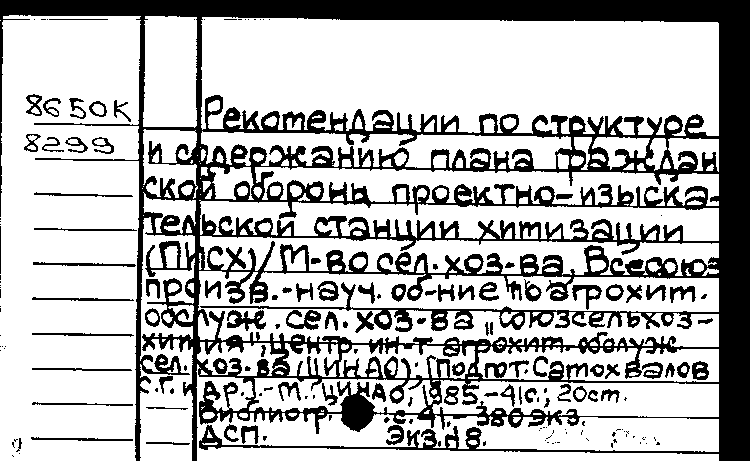 8650К
8299
Рекомендации по структуре
и содержанию плана граждан
ской обороны проектно-изыска-
тельской станции химизации
(ПИСХ)/М-во сел. хоз-ва, Всесоюз
произв.-науч. об-ние по агрохим.
обслуж. сел. хоз-ва „Союзсельхоз-
химия", Центр. ин-т агрохим. обслуж.
сел. хоз-ва (ЦИНАО); [Подгот: Самохвалов
С.Г. и др.].-М.: ЦИНАО, 1985.-41с.; 20см.
Библиогр. :с. 41.- 380 экз.
Дсп. Экз.N8.